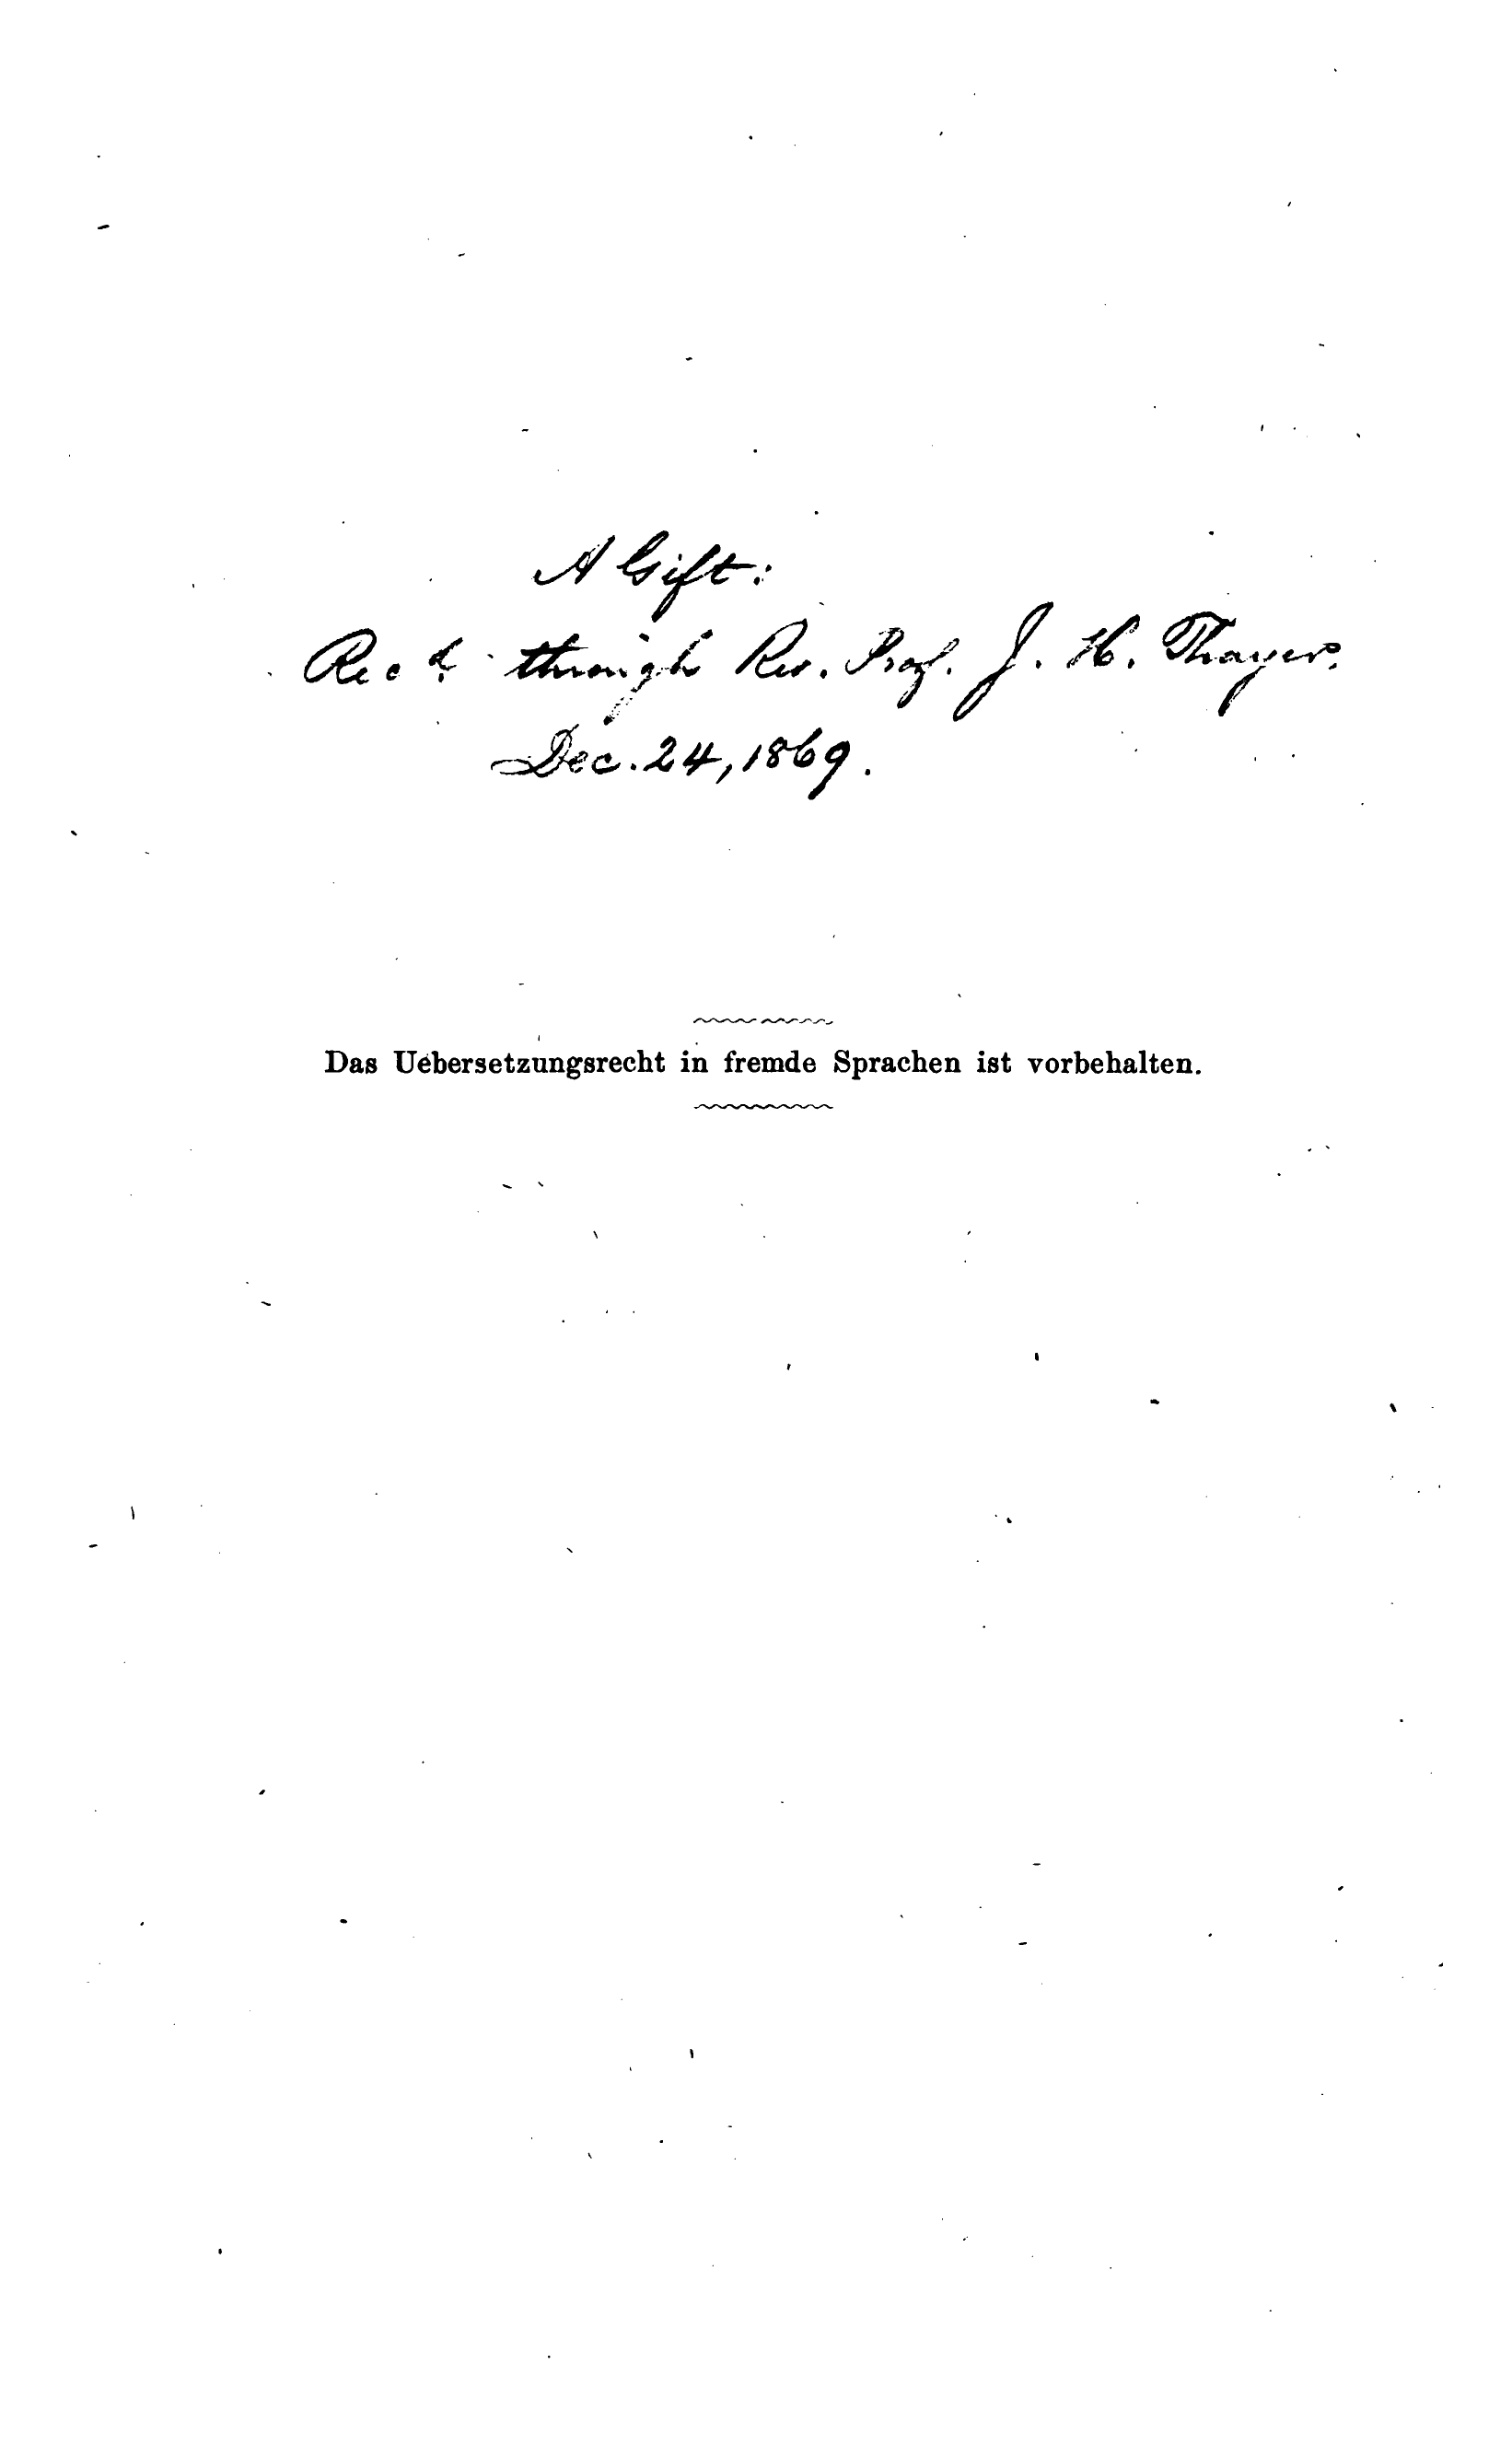 A Gift:
Rec'd. through Rev. Prof. J. H. Thayer.
Dec. 24, 1869.
Das Uebersetzungsrecht in fremde Sprachen ist vorbehalten.